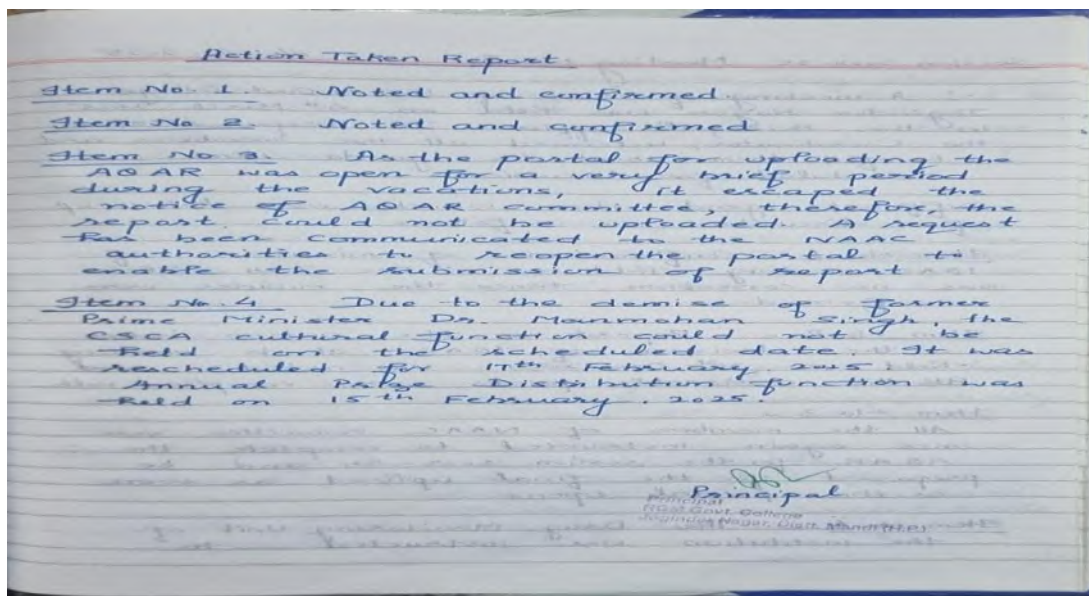 Action Taken Report
Item No 1. Noted and confirmed.
Item No 2. Noted and confirmed
Item No 3. As the portal for uploading the
AQAR was open for a very brief period
during the vacations, it escaped the
notice of AQAR committee, therefore, the
report could not be uploaded. A request
has been communicated to the NAAC
authorities to reopen the portal to
enable the submission of report
Item No. 4 Due to the demise of Former
Prime Minister Dr. Manmohan Singh, the
CSCA cultural function could not be
held on the scheduled date. It was
rescheduled for 17th February 2025
Annual Prize Distribution function was
held on 15th February, 2025.
Principal
Principal
Govt. College
Joginder Nagar, Distt. Mandi (H.P.)